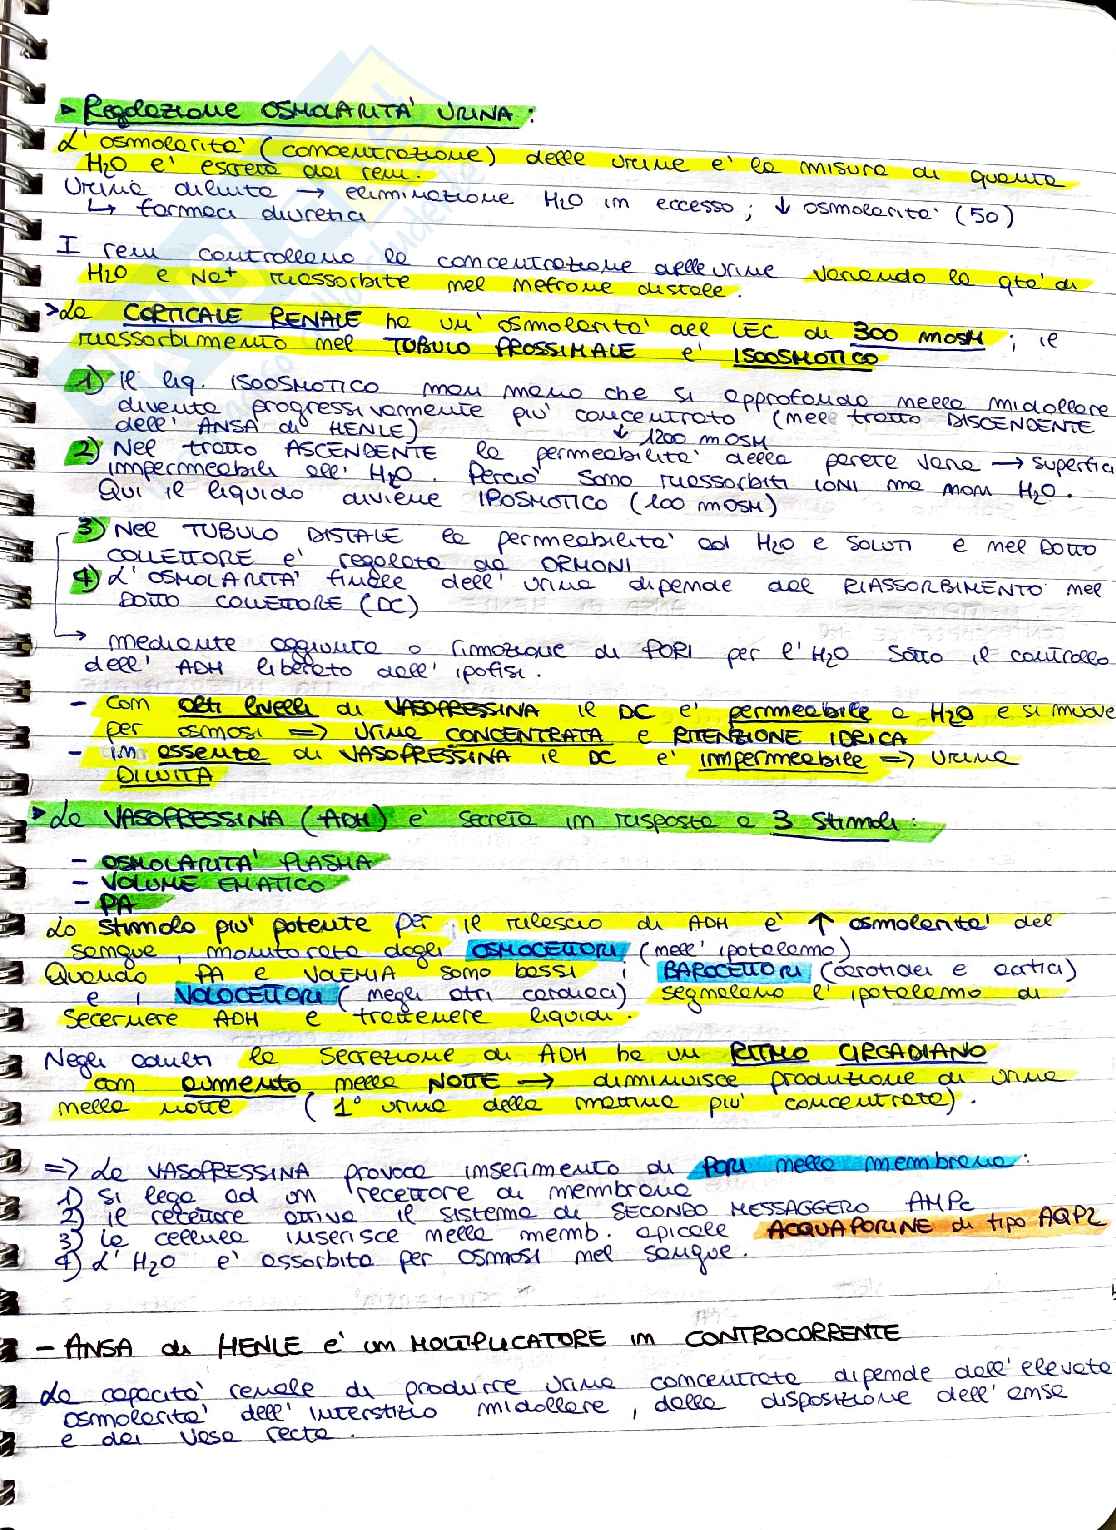 ▶ Regolazione OSMOLARITA' URINA:
L'osmolarita' (concentrazione) delle urine e' la misura di quanta
H2O e' escreta dai reni.
Urina diluita → eliminazione H2O in eccesso; ↓ osmolarita' (50)
↳ farmaci diuretici
I reni controllano la concentrazione delle urine variando la qta' di
H2O e Na+ riassorbite nel nefrone distale.
>La CORTICALE RENALE ha un' osmolarita' del LEC di 300 mOSM; il
riassorbimento nel TUBULO PROSSIMALE e' ISOOSMOTICO
1) Il liq. ISOOSMOTICO man mano che si approfonda nella midollare
diventa progressivamente piu' concentrato (nel tratto DISCENDENTE
dell' ANSA di HENLE)
↓ 1200 mOSM
2) Nel tratto ASCENDENTE la permeabilita' della parete varia → superfici
impermeabili all' H2O. Percio' sono riassorbiti IONI ma non H2O.
Qui il liquido diviene IPOSMOTICO (100 mOSM)
3) Nel TUBULO DISTALE la permeabilita' ad H2O e SOLUTI e nel DOTTO
COLLETTORE e' regolata da ORMONI
4) L'OSMOLARITA' finale dell' urina dipende dal RIASSORBIMENTO nel
DOTTO COLLETTORE (DC)
→ mediante aggiunta o rimozione di PORI per l'H2O sotto il controllo
dell' ADH liberato dall' ipofisi.
- Con alti livelli di VASOPRESSINA il DC e' permeabile a H2O e si muove
per osmosi => urina CONCENTRATA e RITENZIONE IDRICA
- in assenza di VASOPRESSINA il DC e' impermeabile => urina
DILUITA
▶ La VASOPRESSINA (ADH) e' secreta in risposta a 3 stimoli:
- OSMOLARITA' PLASMA
- VOLUME EMATICO
- PA
Lo stimolo piu' potente per il rilascio di ADH e' ↑ osmolarita' del
sangue, monitorata dagli OSMOCETTORI (nell' ipotalamo)
Quando PA e VOLEMIA sono bassi i BAROCETTORI (carotidei e aortici)
e i VOLOCETTORI (negli atri cardiaci) segnalano l'ipotalamo di
secernere ADH e trattenere liquidi.
Negli adulti la secrezione di ADH ha un RITMO CIRCADIANO
con aumento nella NOTTE → diminuisce produzione di urina
nella notte (1° urina della mattina piu' concentrata).
=> La VASOPRESSINA provoca inserimento di PORI nella membrana:
1) Si lega ad un recettore di membrana
2) il recettore attiva il sistema di SECONDO MESSAGGERO AMPc
3) la cellula inserisce nella memb. apicale ACQUAPORINE di tipo AQP2
4) L'H2O e' assorbita per osmosi nel sangue.
- ANSA di HENLE e' un MOLTIPLICATORE in CONTROCORRENTE
La capacita' renale di produrre urina concentrata dipende dall' elevata
osmolarita' dell' interstizio midollare, dalla disposizione dell' ansa
e dei vasa recta.